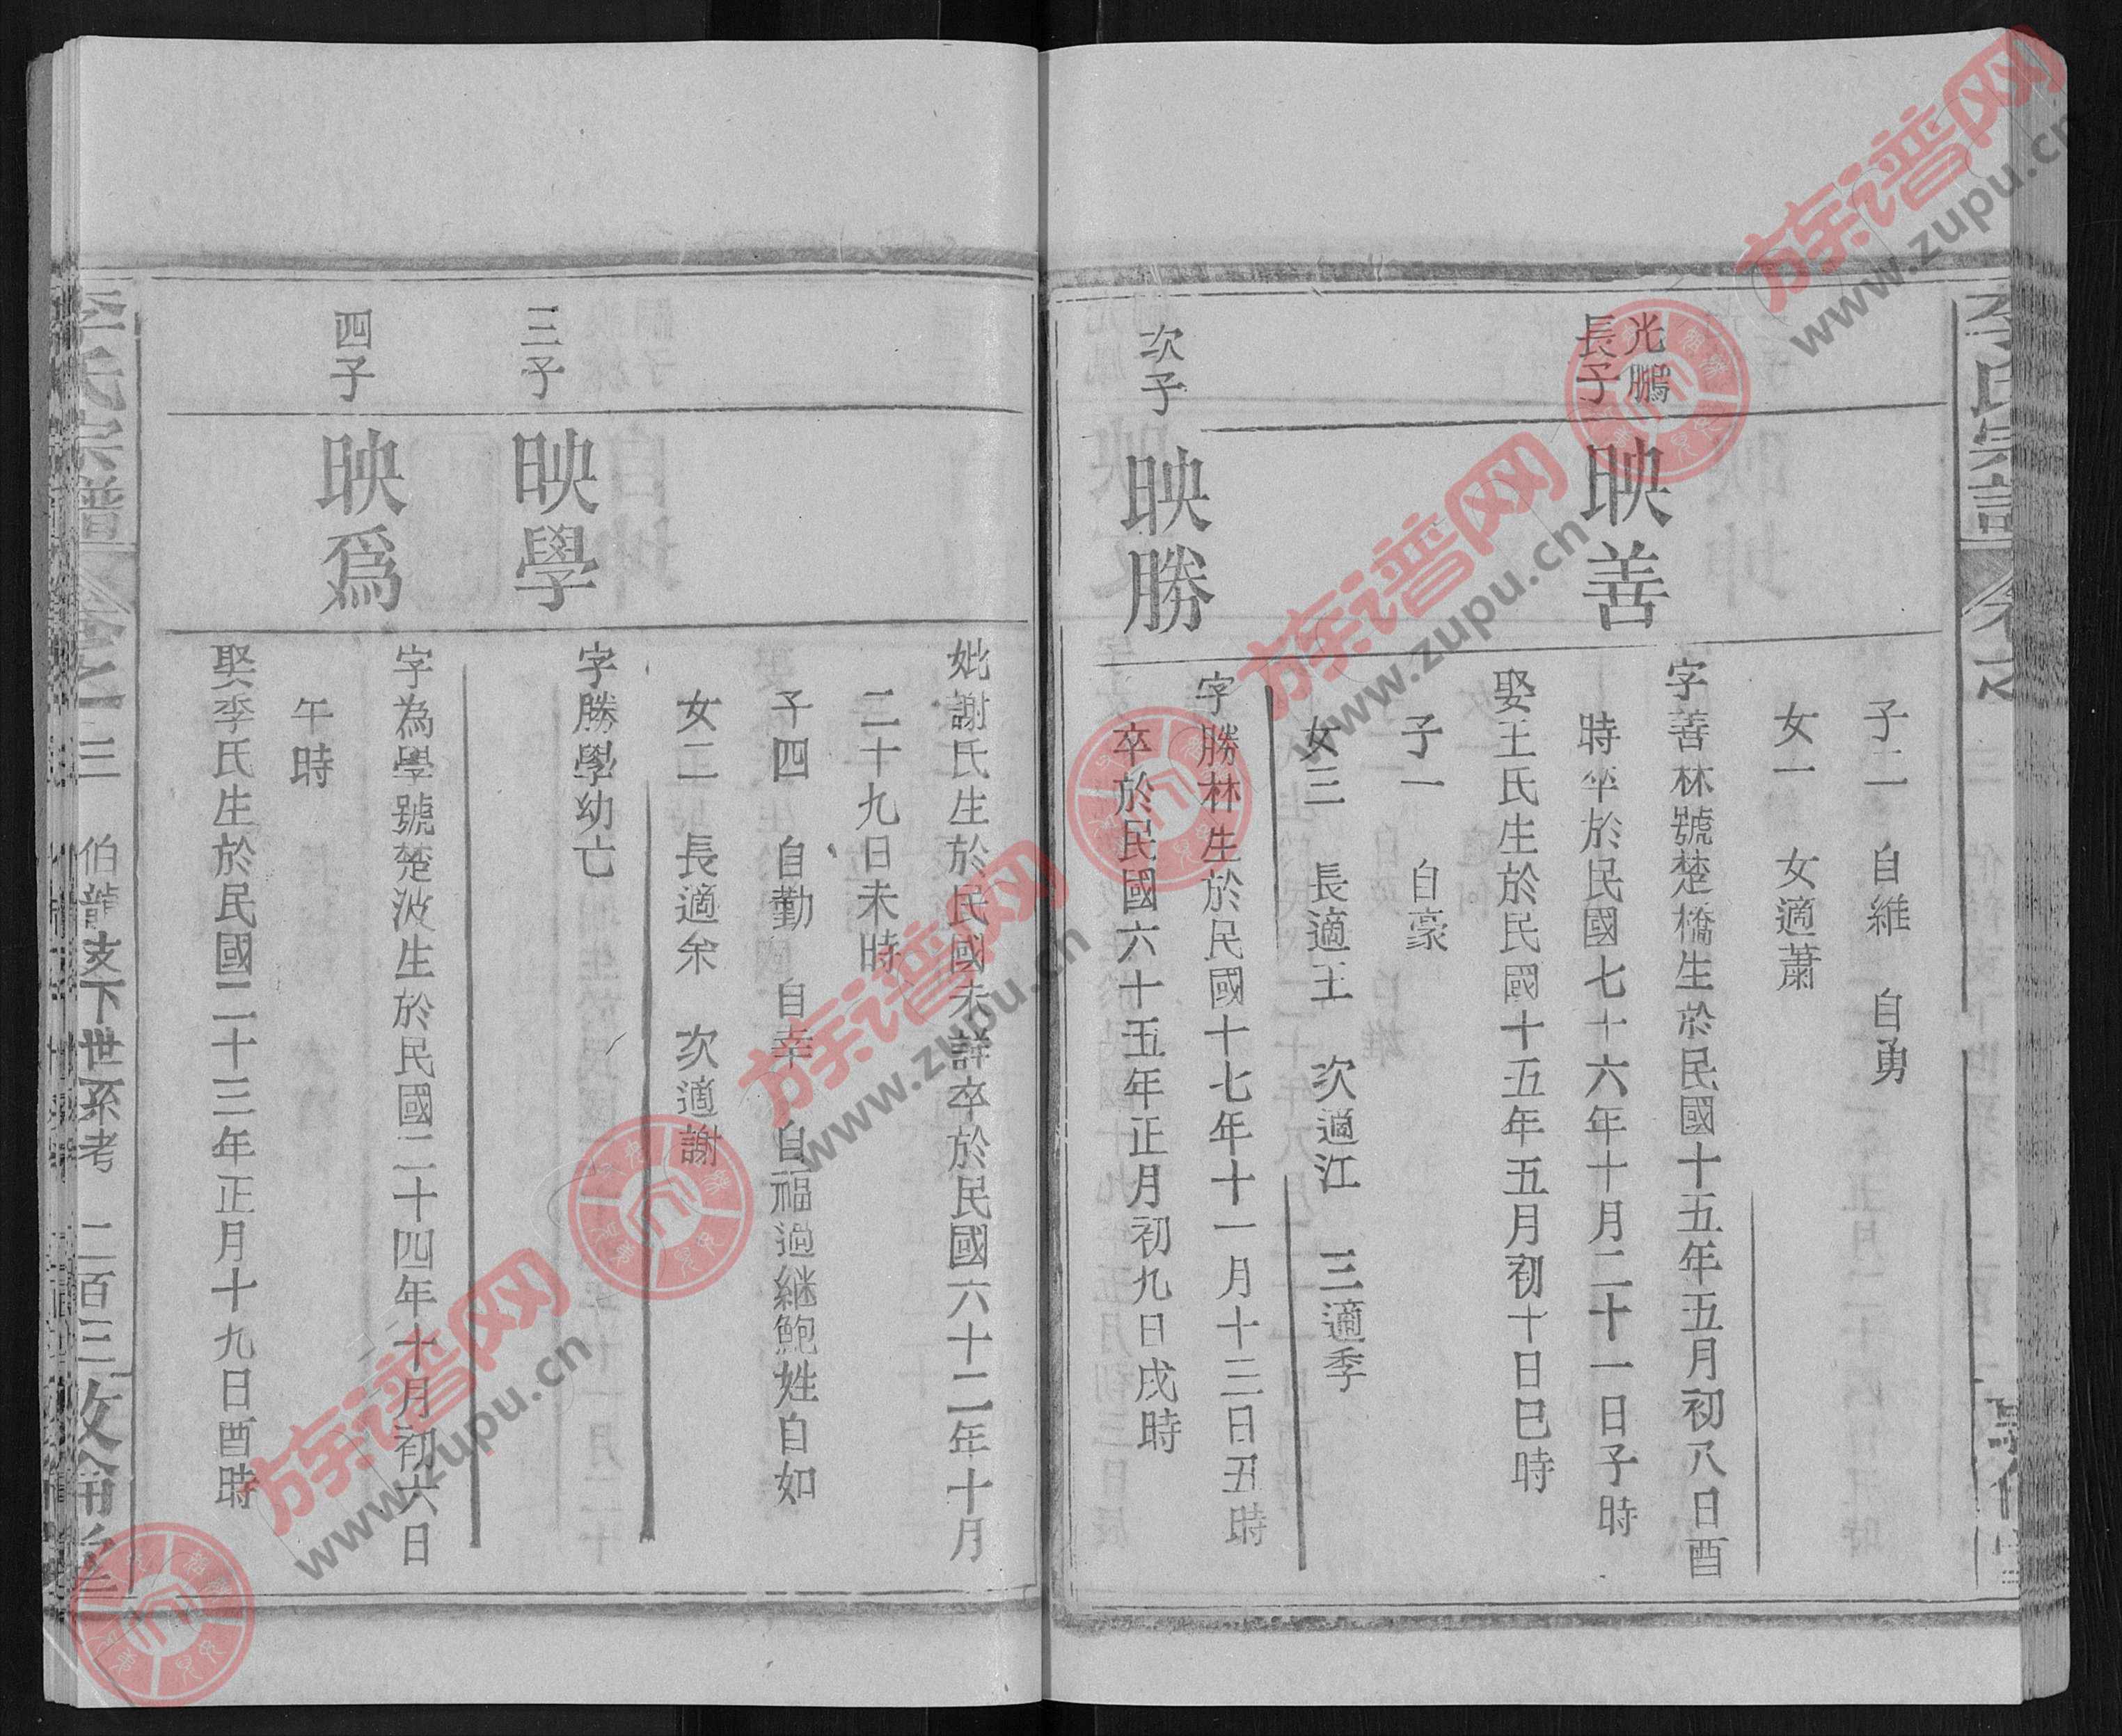 子二　自維　自勇
女一　女適蕭
光鵬
長子
映善
字善林號楚橋生於民國十五年五月初八日酉
時卒於民國七十六年十月二十一日子時
娶王氏生於民國十五年五月初十日巳時
子一　自豪
女三　長適王　次適江　三適季
次子
映勝
字勝林生於民國十七年十一月十三日丑時
卒於民國六十五年正月初九日戌時
妣謝氏生於民國未詳卒於民國六十二年十月
二十九日未時
子四　自勤　自幸　自福過継鮑姓自如
女二　長適余　次適謝
三子
映學
字勝學幼亡
四子
映爲
字為學號楚波生於民國二十四年十月初六日
午時
娶季氏生於民國二十三年正月十九日酉時
李氏宗譜
卷之三
伯龍支下世系考　二百三
族谱网
www.zupu.cn
族谱网
www.zupu.cn
族谱网
www.zupu.cn
族谱网
www.zupu.cn